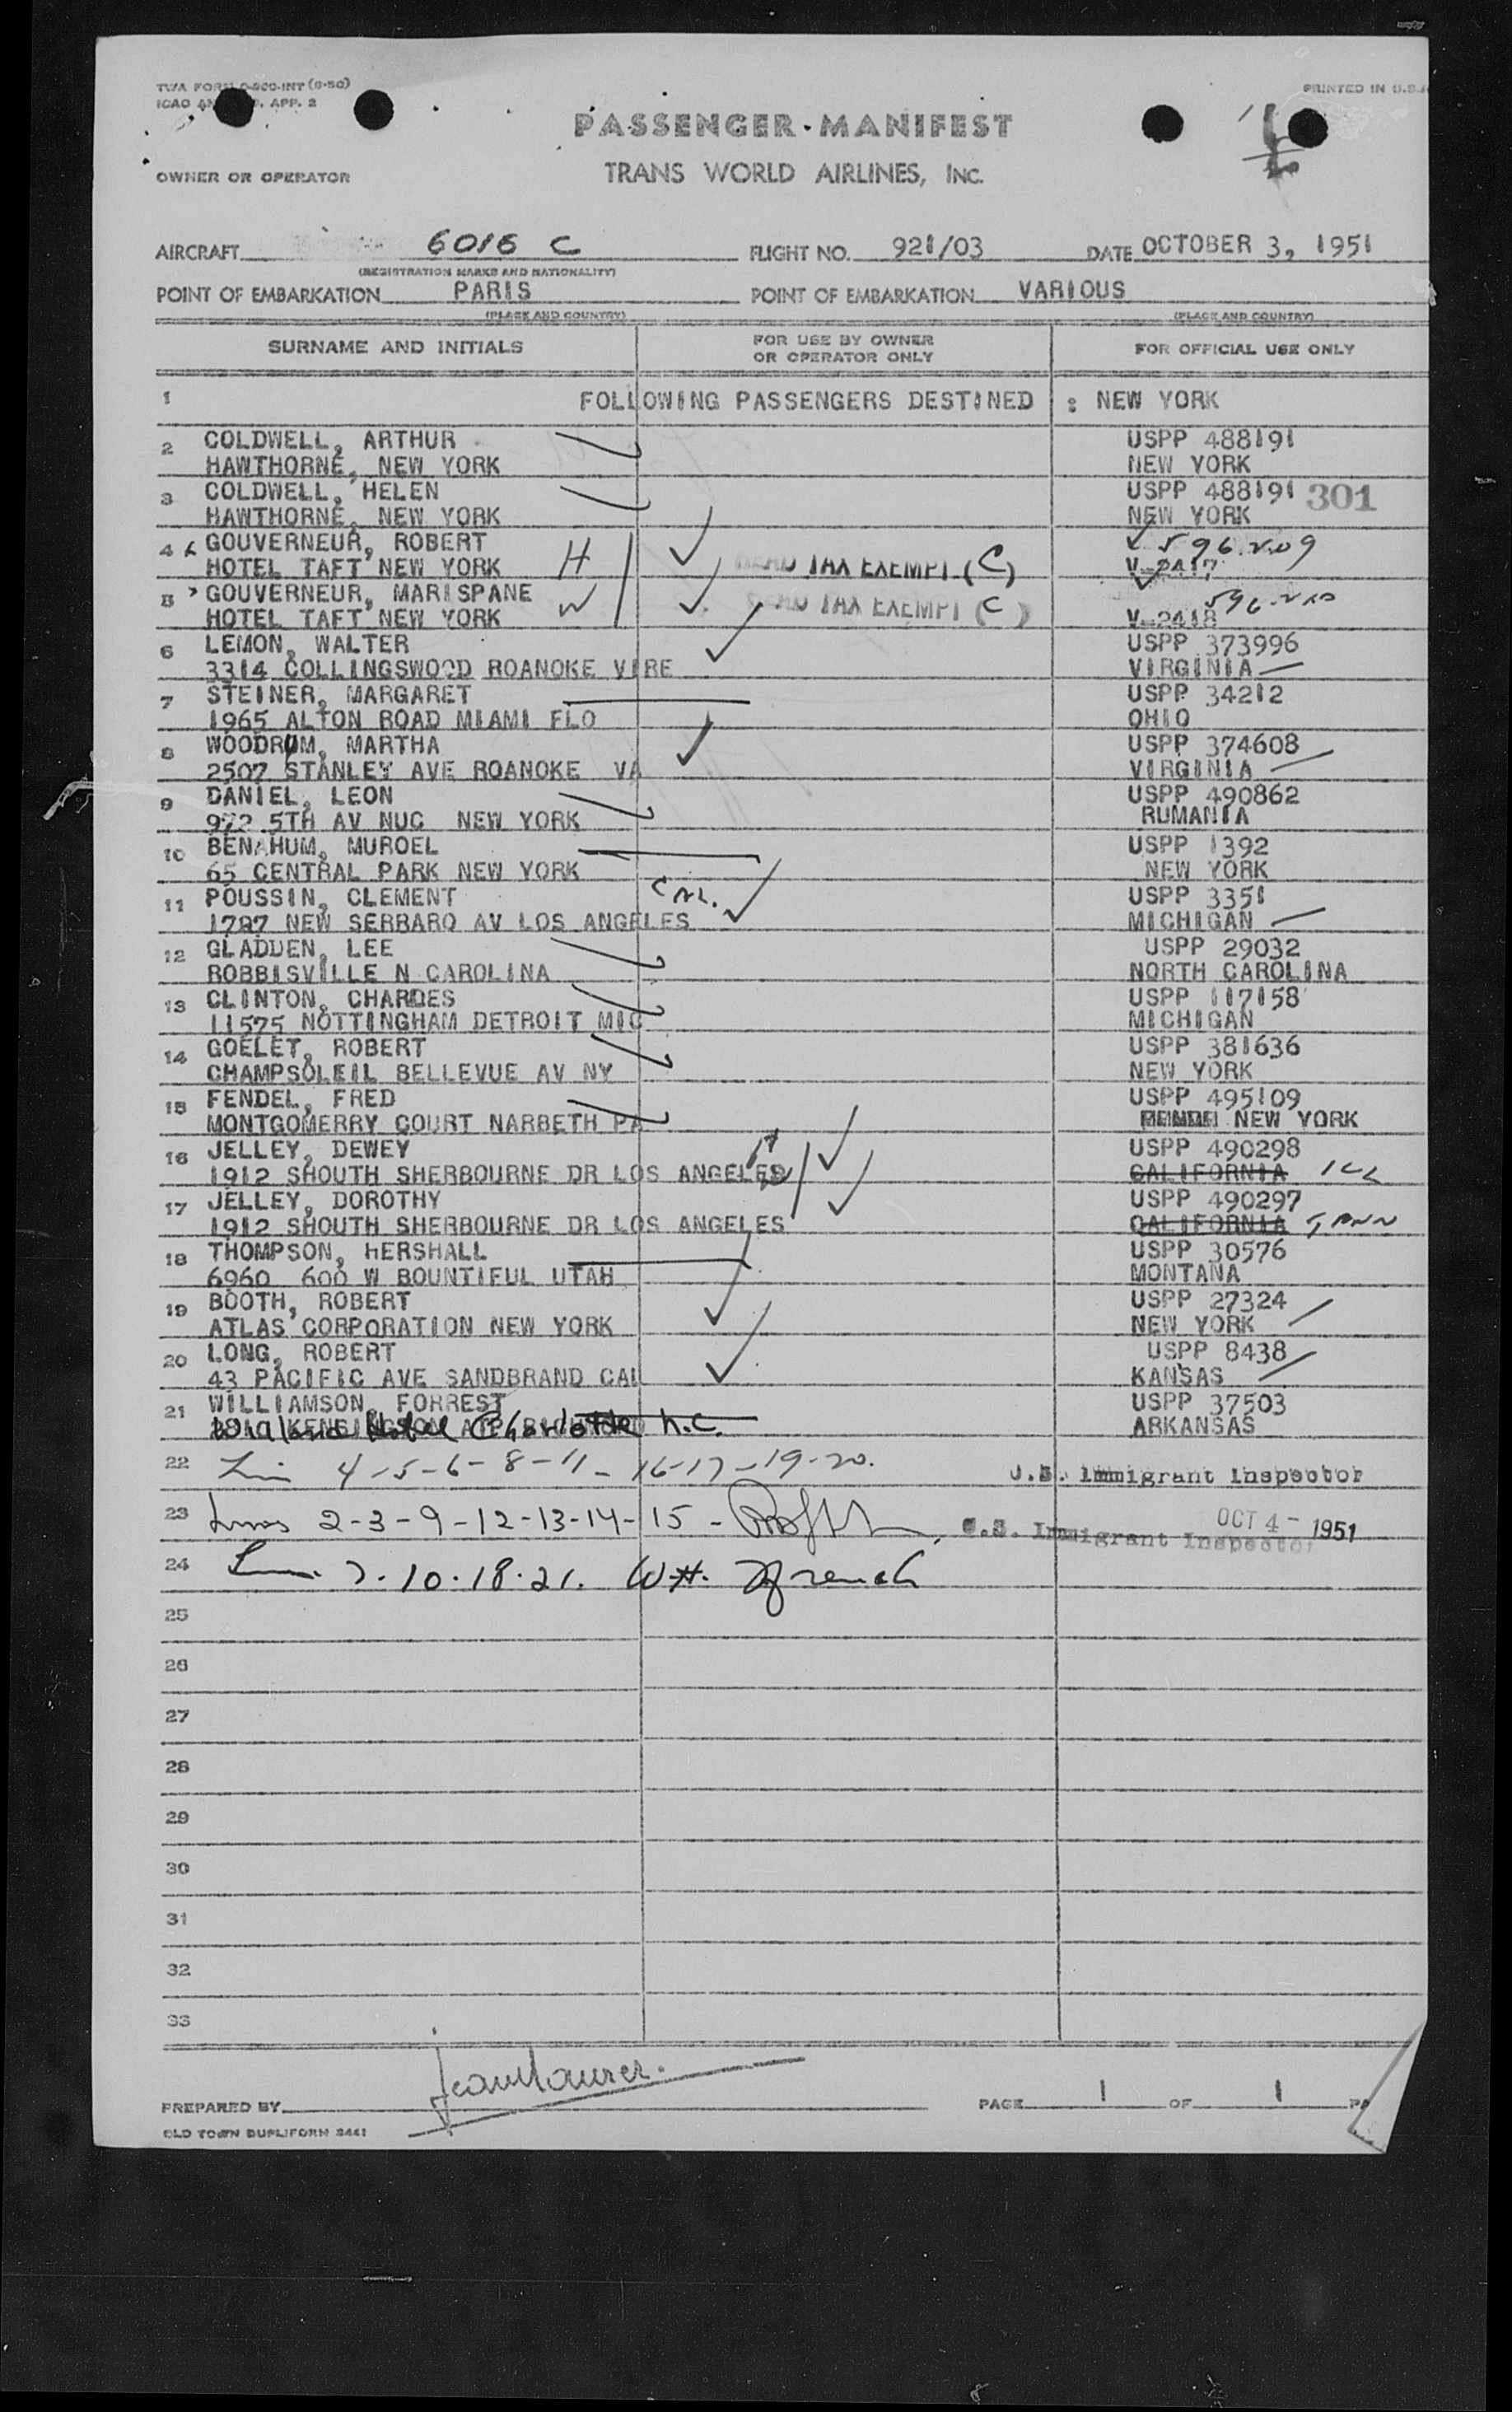 TWA FORM O-800-INT (8-50)
ICAO APP. 2
PRINTED IN U.S.A
PASSENGER MANIFEST
OWNER OR OPERATOR
TRANS WORLD AIRLINES, INC.
AIRCRAFT 6016 C FLIGHT NO. 921/03 DATE OCTOBER 3, 1951
(REGISTRATION MARKS AND NATIONALITY)
POINT OF EMBARKATION PARIS POINT OF EMBARKATION VARIOUS
(PLACE AND COUNTRY) (PLACE AND COUNTRY)
SURNAME AND INITIALS FOR USE BY OWNER OR OPERATOR ONLY FOR OFFICIAL USE ONLY
1 FOLLOWING PASSENGERS DESTINED : NEW YORK
2 COLDWELL, ARTHUR USPP 488191
HAWTHORNE, NEW YORK NEW YORK
3 COLDWELL, HELEN USPP 488191 301
HAWTHORNE, NEW YORK NEW YORK
4 GOUVERNEUR, ROBERT 596209
HOTEL TAFT NEW YORK H TAX EXEMPT (C) V-2417
5 GOUVERNEUR, MARISPANE 596210
HOTEL TAFT NEW YORK W TAX EXEMPT (C) V-2418
6 LEMON, WALTER USPP 373996
3314 COLLINGSWOOD ROANOKE VIRE VIRGINIA
7 STEINER, MARGARET USPP 34212
1965 ALTON ROAD MIAMI FLO OHIO
8 WOODRUM, MARTHA USPP 374608
2507 STANLEY AVE ROANOKE VA VIRGINIA
9 DANIEL, LEON USPP 490862
972 5TH AV NUC NEW YORK RUMANIA
10 BENAHUM, MUROEL USPP 1392
65 CENTRAL PARK NEW YORK NEW YORK
11 POUSSIN, CLEMENT USPP 3351
1787 NEW SERRARO AV LOS ANGELES MICHIGAN
12 GLADDEN, LEE USPP 29032
ROBBISVILLE N CAROLINA NORTH CAROLINA
13 CLINTON, CHARDES USPP 117158
11575 NOTTINGHAM DETROIT MIC MICHIGAN
14 GOELET, ROBERT USPP 381636
CHAMPSOLEIL BELLEVUE AV NY NEW YORK
15 FENDEL, FRED USPP 495109
MONTGOMERRY COURT NARBETH PA NEW YORK
16 JELLEY, DEWEY H USPP 490298
1912 SHOUTH SHERBOURNE DR LOS ANGELES W CALIFORNIA ILL
17 JELLEY, DOROTHY USPP 490297
1912 SHOUTH SHERBOURNE DR LOS ANGELES CALIFORNIA TENN
18 THOMPSON, HERSHALL USPP 30576
6960 600 W BOUNTIFUL UTAH MONTANA
19 BOOTH, ROBERT USPP 27324
ATLAS CORPORATION NEW YORK NEW YORK
20 LONG, ROBERT USPP 8438
43 PACIFIC AVE SANDBRAND CAL KANSAS
21 WILLIAMSON, FORREST USPP 37503
Hotel Charlotte N.C. ARKANSAS
22 4-5-6-8-11-16-17-19-20. U.S. Immigrant Inspector
23 Lines 2-3-9-12-13-14-15- U.S. Immigrant Inspector OCT 4- 1951
24 7.10.18.21. Wm. French
25
26
27
28
29
30
31
32
33
PREPARED BY PAGE 1 OF 1 PA
OLD TOWN DUPLIFORM 8441